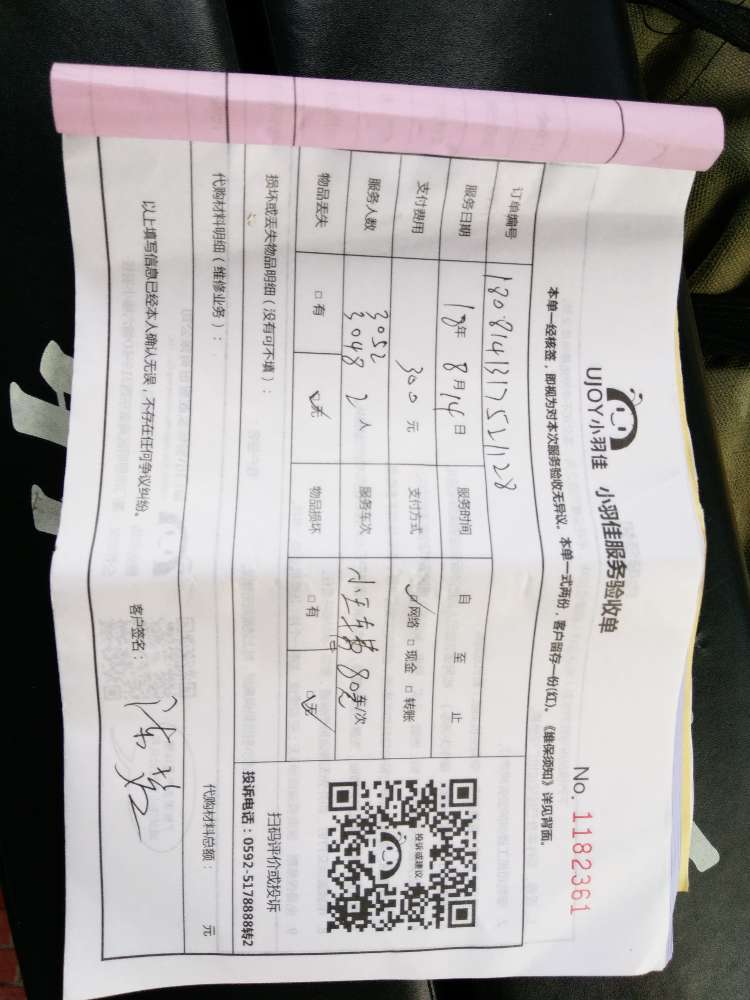 UJOY小羽佳 小羽佳服务验收单
No. 1182361
本单一经核签，即视为对本次服务验收无异议。本单一式两份，客户留存一份(红)。《维保须知》详见背面。
订单编号 1808141317521128
服务日期 18年 8月14日 服务时间 自 至 止
支付费用 300元 支付方式 ☑网络 □现金 □转账
服务人数 3052 3048 2人 服务车次 80元车/次
物品丢失 □有 ☑无 物品损坏 □有 ☑无
损坏或丢失物品明细（没有可不填）：
投诉或建议
扫码评价或投诉
投诉电话：0592-5178888转2
代购材料明细（维修业务）：
代购材料总额： 元
以上填写信息已经本人确认无误，不存在任何争议纠纷。
客户签名：